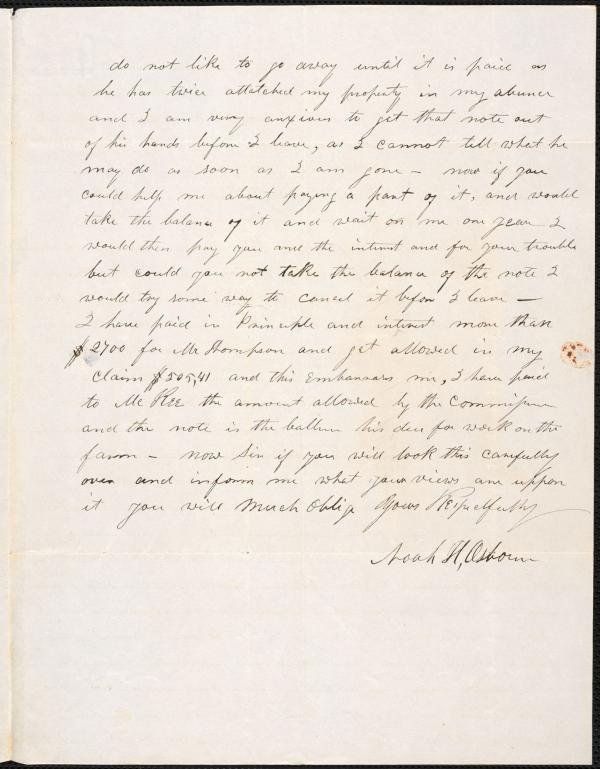 do not like to go away until it is paid as
he has twice attatched my property in my absence
and I am very anxious to get that note out
of his hands before I leave, as I cannot tell what he
may do as soon as I am gone – now if you
could help me about paying a part of it, and would
take the balance of it and wait on me one year I
would then pay you and the interest and for your trouble
but could you not take the balance of the note I
would try some way to cancel it before I leave –
I have paid in Principle and interest more than
$2700 for Mr Thompson and get allowed in my
Claim $505,41 and this Embarrass me, I have paid
to Mc Kee the amount allowed by the Commissioner
and the note is the ballance his due for work on the
farm – now Sir if you will look this carefully
over and inform me what your views are uppon
it you will Much Oblige Yours Respectfully
Noah H, Osborne